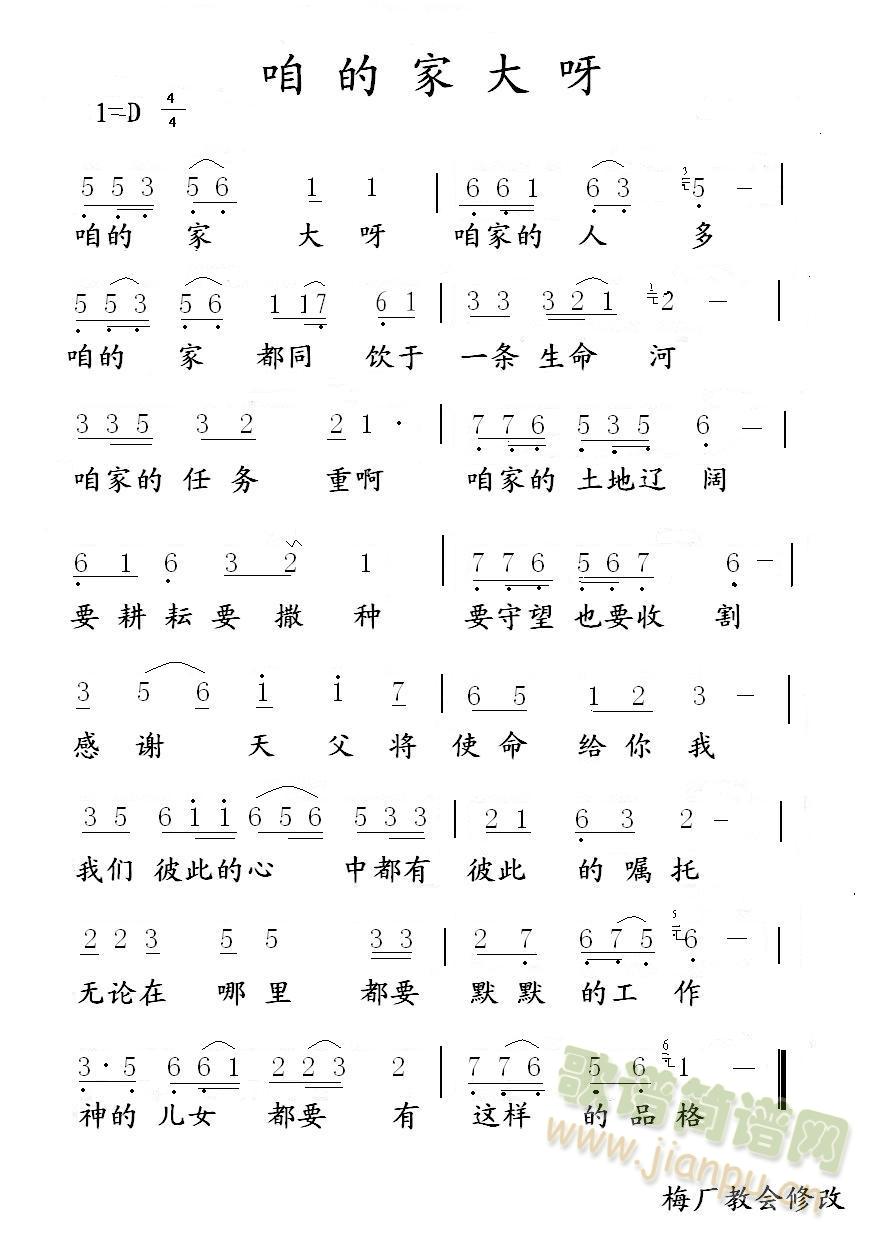 咱的家大呀
1=D 4/4
5 5 3 5 6 1 1 | 6 6 1 6 3 3 5 — |
咱的 家 大 呀 咱家的 人 多
5 5 3 5 6 1 1 7 6 1 | 3 3 3 2 1 2 — |
咱的 家 都同 饮于 一条 生命 河
3 3 5 3 2 2 1 · | 7 7 6 5 3 5 6 — |
咱家的 任务 重啊 咱家的 土地辽 阔
6 1 6 3 2 1 | 7 7 6 5 6 7 6 — |
要 耕 耘 要 撒 种 要守望 也要收 割
3 5 6 i i 7 | 6 5 1 2 3 — |
感 谢 天 父 将 使 命 给 你 我
3 5 6 i i 6 5 6 5 3 3 | 2 1 6 3 2 — |
我们 彼此的心 中都有 彼此 的 嘱 托
2 2 3 5 5 3 3 | 2 7 6 7 5 5 6 — |
无论在 哪 里 都要 默 默 的工 作
3 · 5 6 6 1 2 2 3 2 | 7 7 6 5 6 6 1 — ‖
神的 儿女 都要 有 这样 的 品 格
歌谱简谱网
www.jianpu.cn
梅厂教会修改